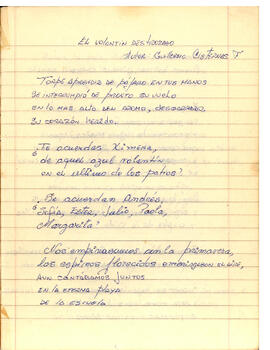 EL VOLANTIN DESTROZADO
Autor: Guillermo Cisternas T
TORPE APRENDIZ DE PÁJARO EN TUS MANOS
SE INTERRUMPIÓ DE PRONTO SU VUELO
EN LO MAS ALTO DEL ALAMO, DESGARRADO
SU CORAZÓN HERIDO.
¿TE ACUERDAS XIMENA,
DE AQUEL AZUL VOLANTÍN
EN EL ULTIMO DE LOS PATIOS?
¿SE ACUERDAN ANDRÉS,
SOFÍA, ESTER, JULIO, PAOLA,
MARGARITA?
NOS EMPINABAMOS CON LA PRIMAVERA,
LOS ESPINOS FLORECIDOS EL AIRE,
AUN CANTÁBAMOS JUNTOS
EN LA ETERNA PLAYA
DE LA ESCUELA